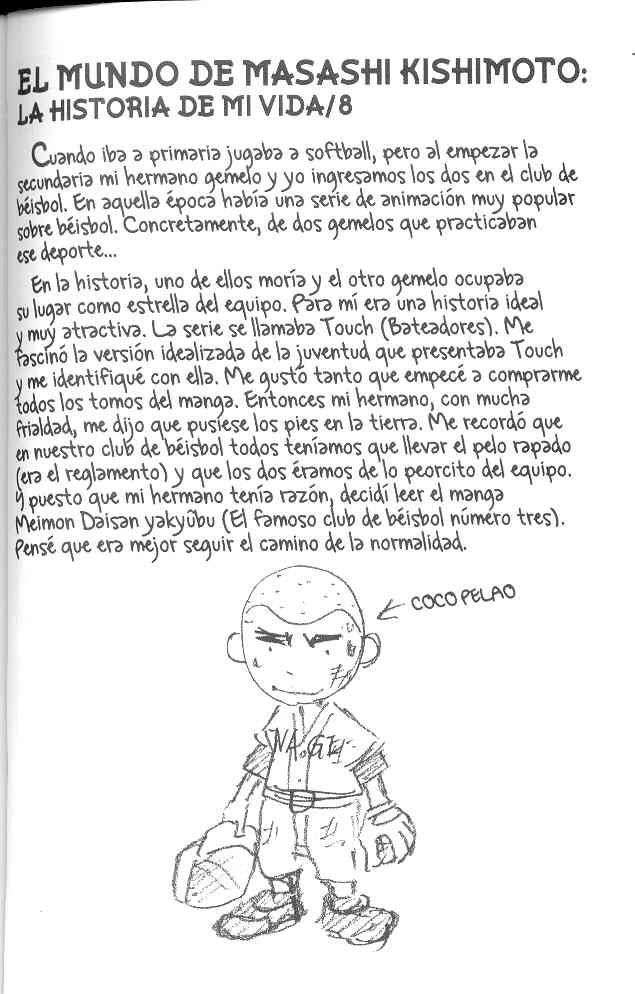 EL MUNDO DE MASASHI KISHIMOTO:
LA HISTORIA DE MI VIDA/8
Cuando iba a primaria jugaba a softball, pero al empezar la
secundaria mi hermano gemelo y yo ingresamos los dos en el club de
béisbol. En aquella época había una serie de animación muy popular
sobre béisbol. Concretamente, de dos gemelos que practicaban
ese deporte...
En la historia, uno de ellos moría y el otro gemelo ocupaba
su lugar como estrella del equipo. Para mí era una historia ideal
y muy atractiva. La serie se llamaba Touch (Bateadores). Me
fascinó la versión idealizada de la juventud que presentaba Touch
y me identifiqué con ella. Me gustó tanto que empecé a comprarme
todos los tomos del manga. Entonces mi hermano, con mucha
frialdad, me dijo que pusiese los pies en la tierra. Me recordó que
en nuestro club de béisbol todos teníamos que llevar el pelo rapado
(era el reglamento) y que los dos éramos de lo peorcito del equipo.
Y puesto que mi hermano tenía razón, decidí leer el manga
Meimon Daisan yakyûbu (El famoso club de béisbol número tres).
Pensé que era mejor seguir el camino de la normalidad.
COCO PELAO